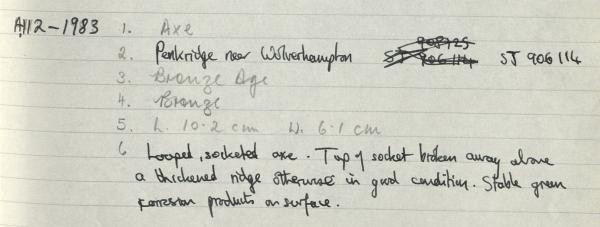 A112-1983 1. Axe
2. Penkridge near Wolverhampton ST 906114 SJ 906114
3. Bronze Age
4. Bronze
5. L. 10.2 cm W. 6.1 cm
6 Looped, socketed axe. Top of socket broken away above
a thickened ridge otherwise in good condition. Stable green
corrosion products on surface.